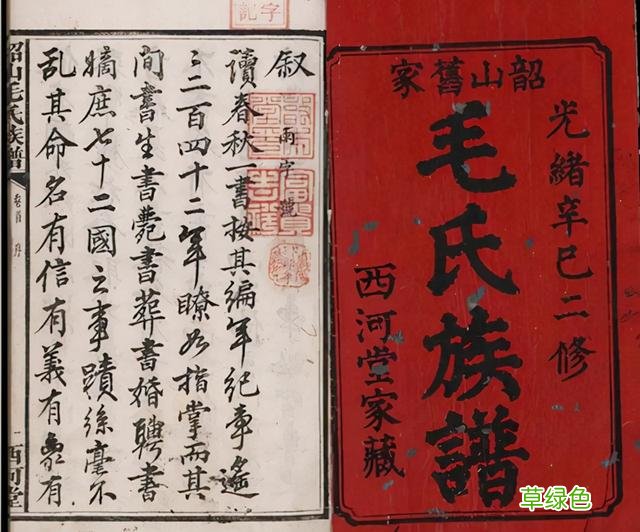 韶山舊家
光緒辛巳二修
毛氏族譜
西河堂家藏
叙
讀春秋一書按其編年紀事遙
〻二百四十二年瞭如指掌而其
間書生書薨書葬書婚聘書
嫡庶七十二國之事蹟絲毫不
亂其命名有信有義有象有
韶山毛氏族譜
卷首 序
一
西河堂
草绿色